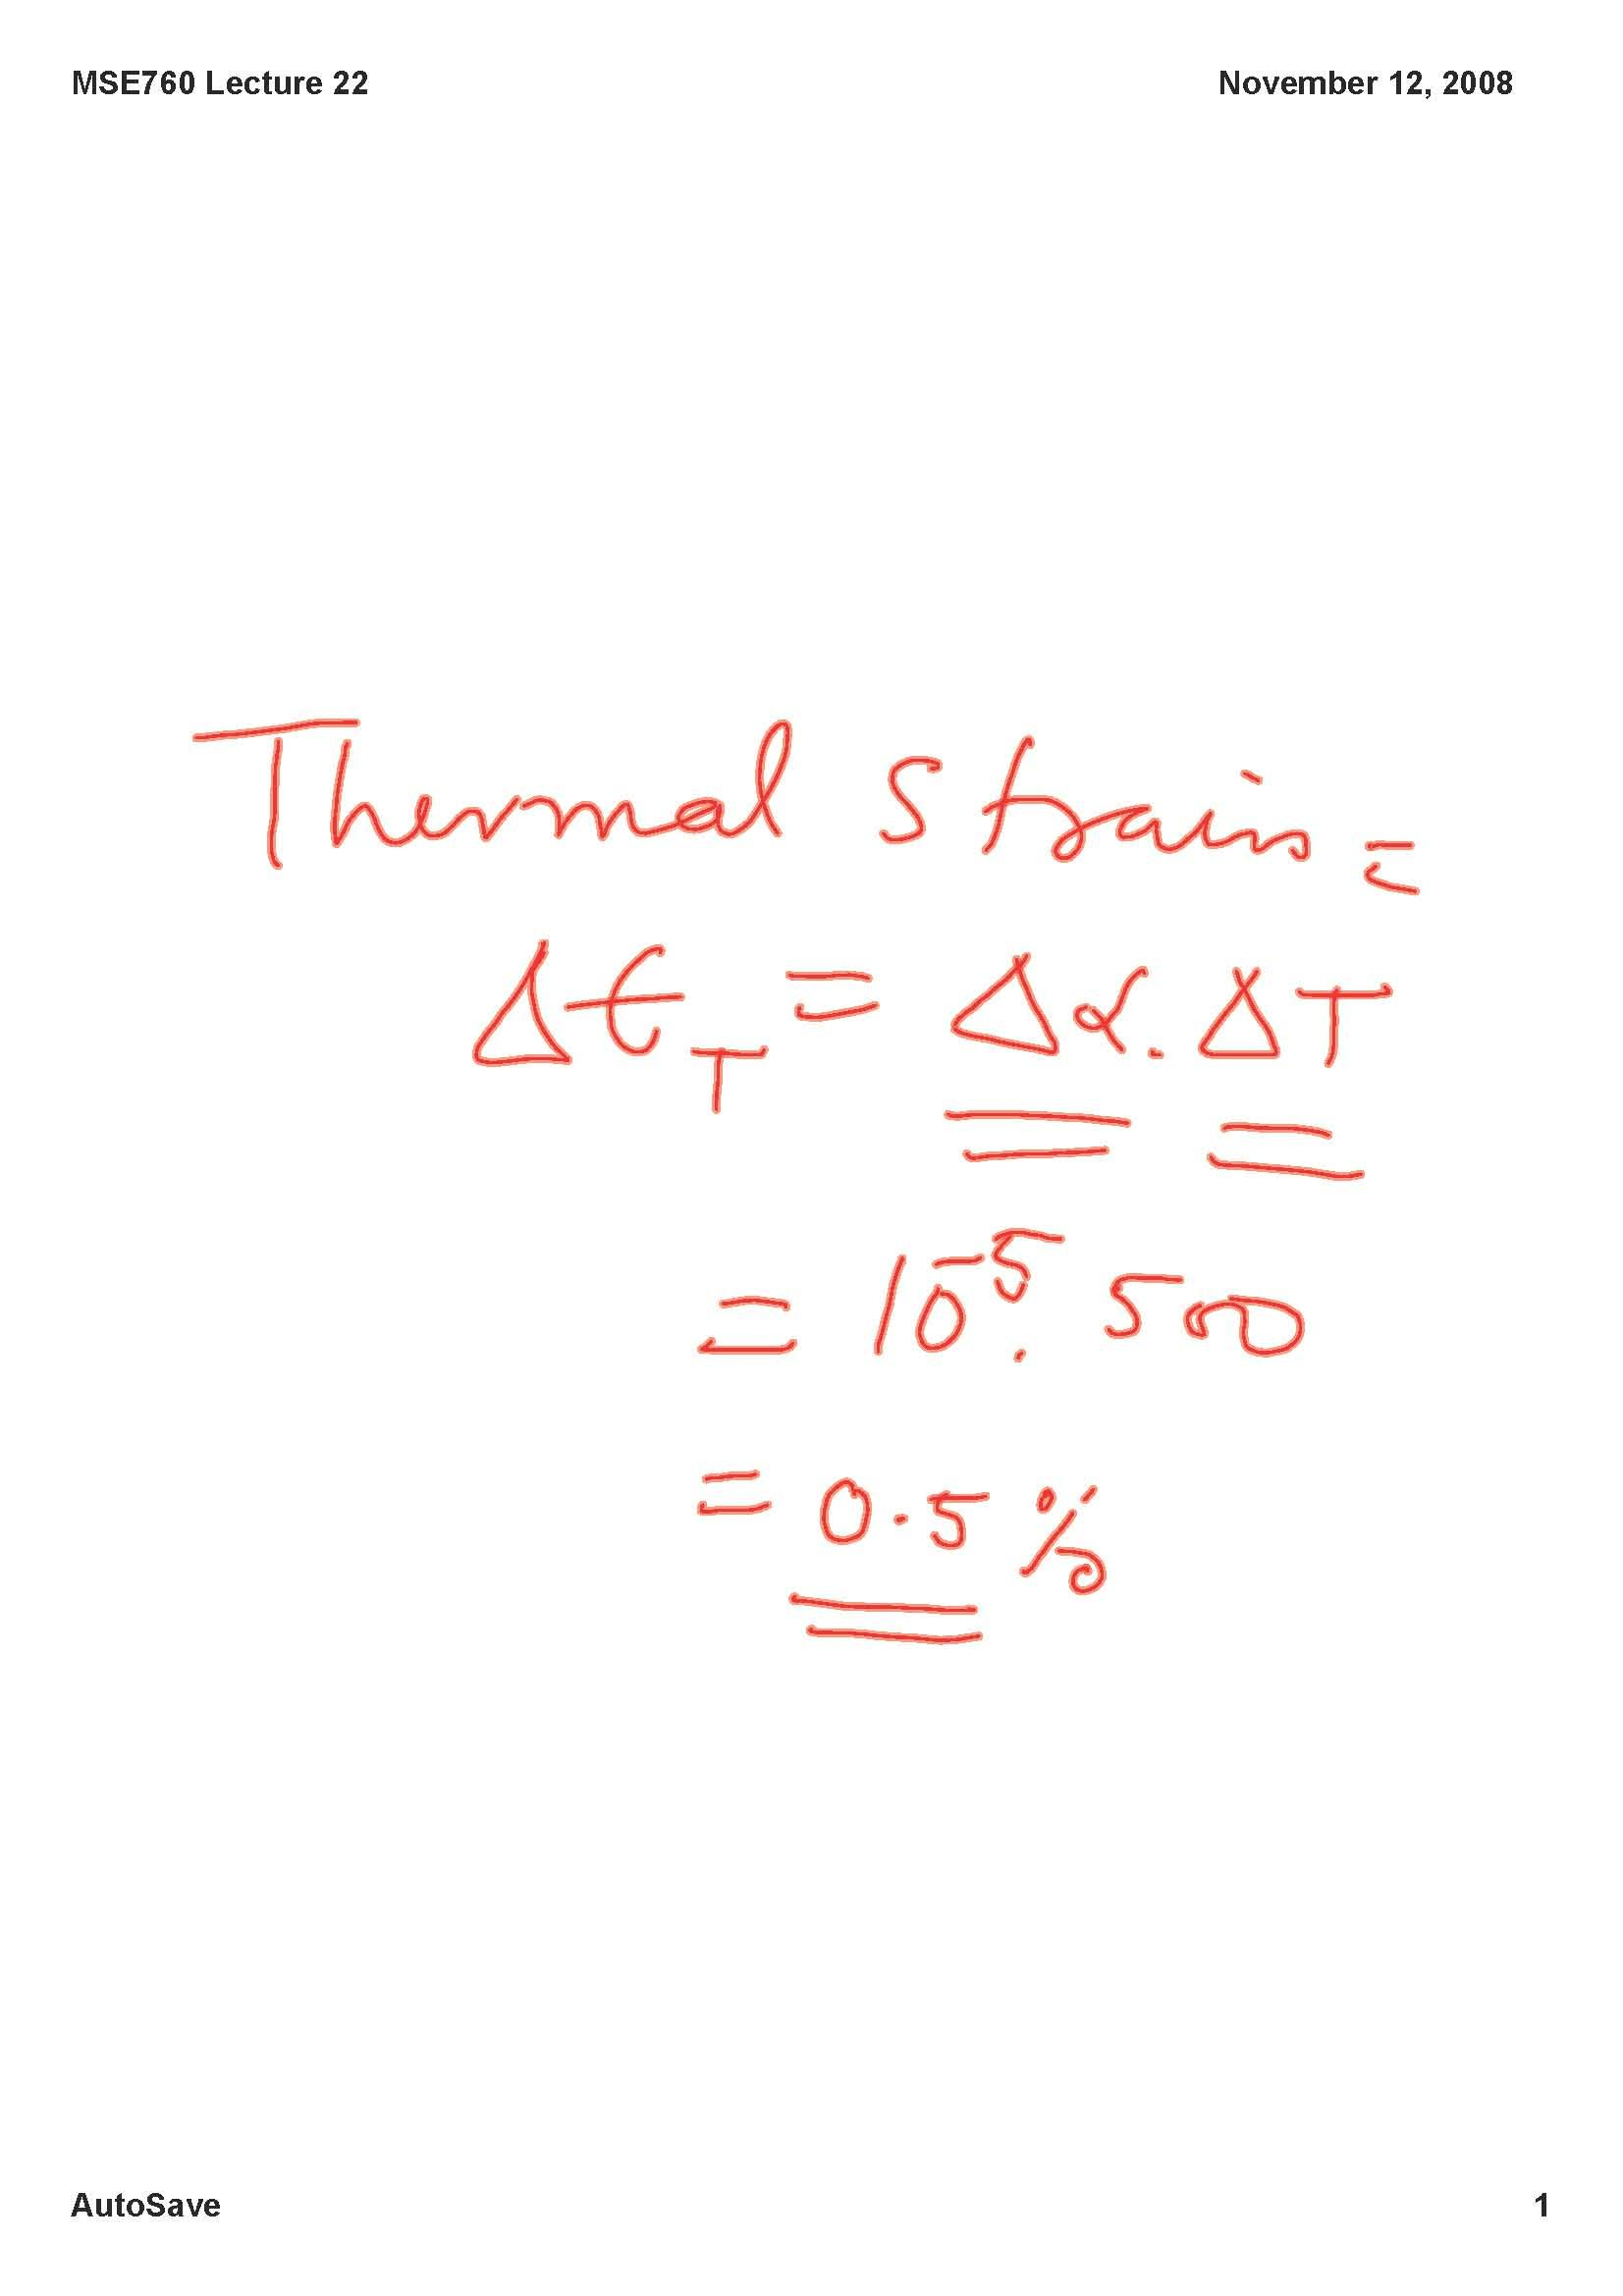 MSE760 Lecture 22 November 12, 2008
Thermal Strain =
Δϵ_T = Δα. ΔT
= 10⁻⁵. 500
= 0.5 %
AutoSave 1